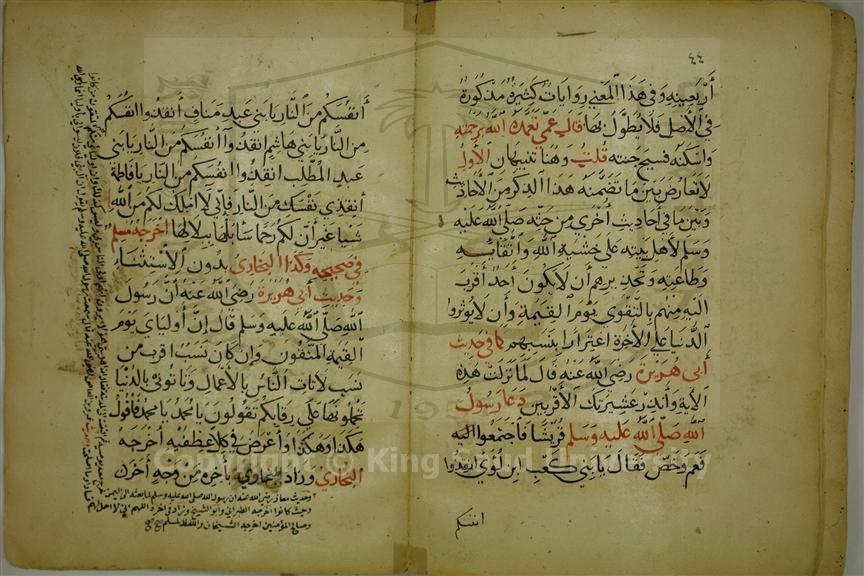 ٤٤
أربعينه وفي هذا المعنى روايات كثيرة مذكورة
في الأصل فلا نطول بها قال عمي تغمده الله برحمته
واسكنه فسيح جنته قلت وهنا تنبيهان الأول
لا تعارض بين ما تضمنه هذا الذكر من الأحاديث
وبين ما في أحاديث أخرى من حثه صلى الله عليه
وسلم لأهل بيته على خشية الله واتقائه
وطاعته وتحذيرهم أن لا يكون أحد أقرب
اليه منهم بالتقوى يوم القيمة وأن لا يؤثروا
الدنيا على الآخرة اغترارا بنسبهم كما في حديث
أبى هريرة رضى الله عنه قال لما نزلت هذه
الآية وأنذر عشيرتك الأقربين دعا رسول
الله صلى الله عليه وسلم قريشا فاجتمعوا اليه
فعم وخص فقال يا بني كعب ابن لؤي انقذوا
انفسكم
أنفسكم من النار يا بني عبد مناف أنقذوا انفسكم
من النار يا بني هاشم انقذوا أنفسكم من النار يا بني
عبد المطلب انقذوا انفسكم من النار يا فاطمة
أنقذي نفسك من النار فإني لا املك لكم من الله
شيا غير أن لكم رحما سابلها ببلالها أخرجه مسلم
في صحيحه وكذا البخارى بدون الاستثناء
وحديث أبى هريرة رضى الله عنه أن رسول
الله صلى الله عليه وسلم قال إن أوليائ يوم
القيمة المتقون وإن كان نسب اقرب من
نسب لا تأت الناس بالأعمال وتأتونى بالدنيا
تحملونها على رقابكم تقولون يا محمد يا محمد فأقول
هكذا وهكذا وأعرض في كلا عطفيه أخرجه
البخارى وزاد بآخره من وجه أخرك
وحديث معاذ رضى الله عنه ان رسول الله صلى الله عليه وسلم لما بعثه الى اليمن
وحيث كانوا اخرجه الطبرانى وابو الشيخ وزاد في اخره اللهم انى لا احل لهم
وصالح المؤمنين اخرجه الشيخان واللفظ لمسلم
Copyright © King Saud University
195